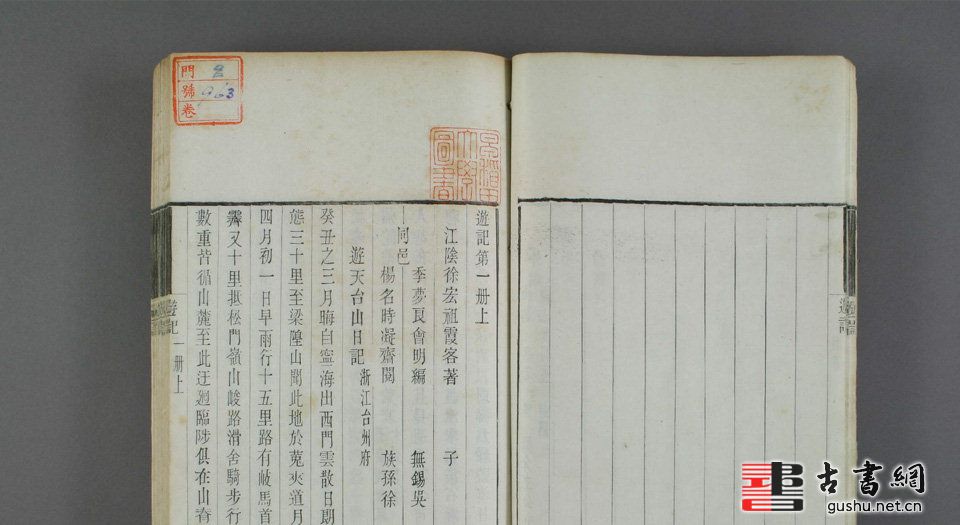 門
號 963
卷
早稻田
大學
圖書
遊記第一册上
江陰徐宏祖霞客著 子
同邑
季夢良會明編 無錫吳
楊名時凝齋閱 族孫徐
遊天台山日記 浙江台州府
癸丑之三月晦自寧海出西門雲散日朗
態三十里至梁隍山聞此地於菟夾道月
四月初一日早雨行十五里路有岐馬首
霽又十里抵松門嶺山峻路滑舍騎步行
數重皆循山麓至此迂迴臨陟俱在山脊
遊記 一册上
遊記
古書網
gushu.net.cn